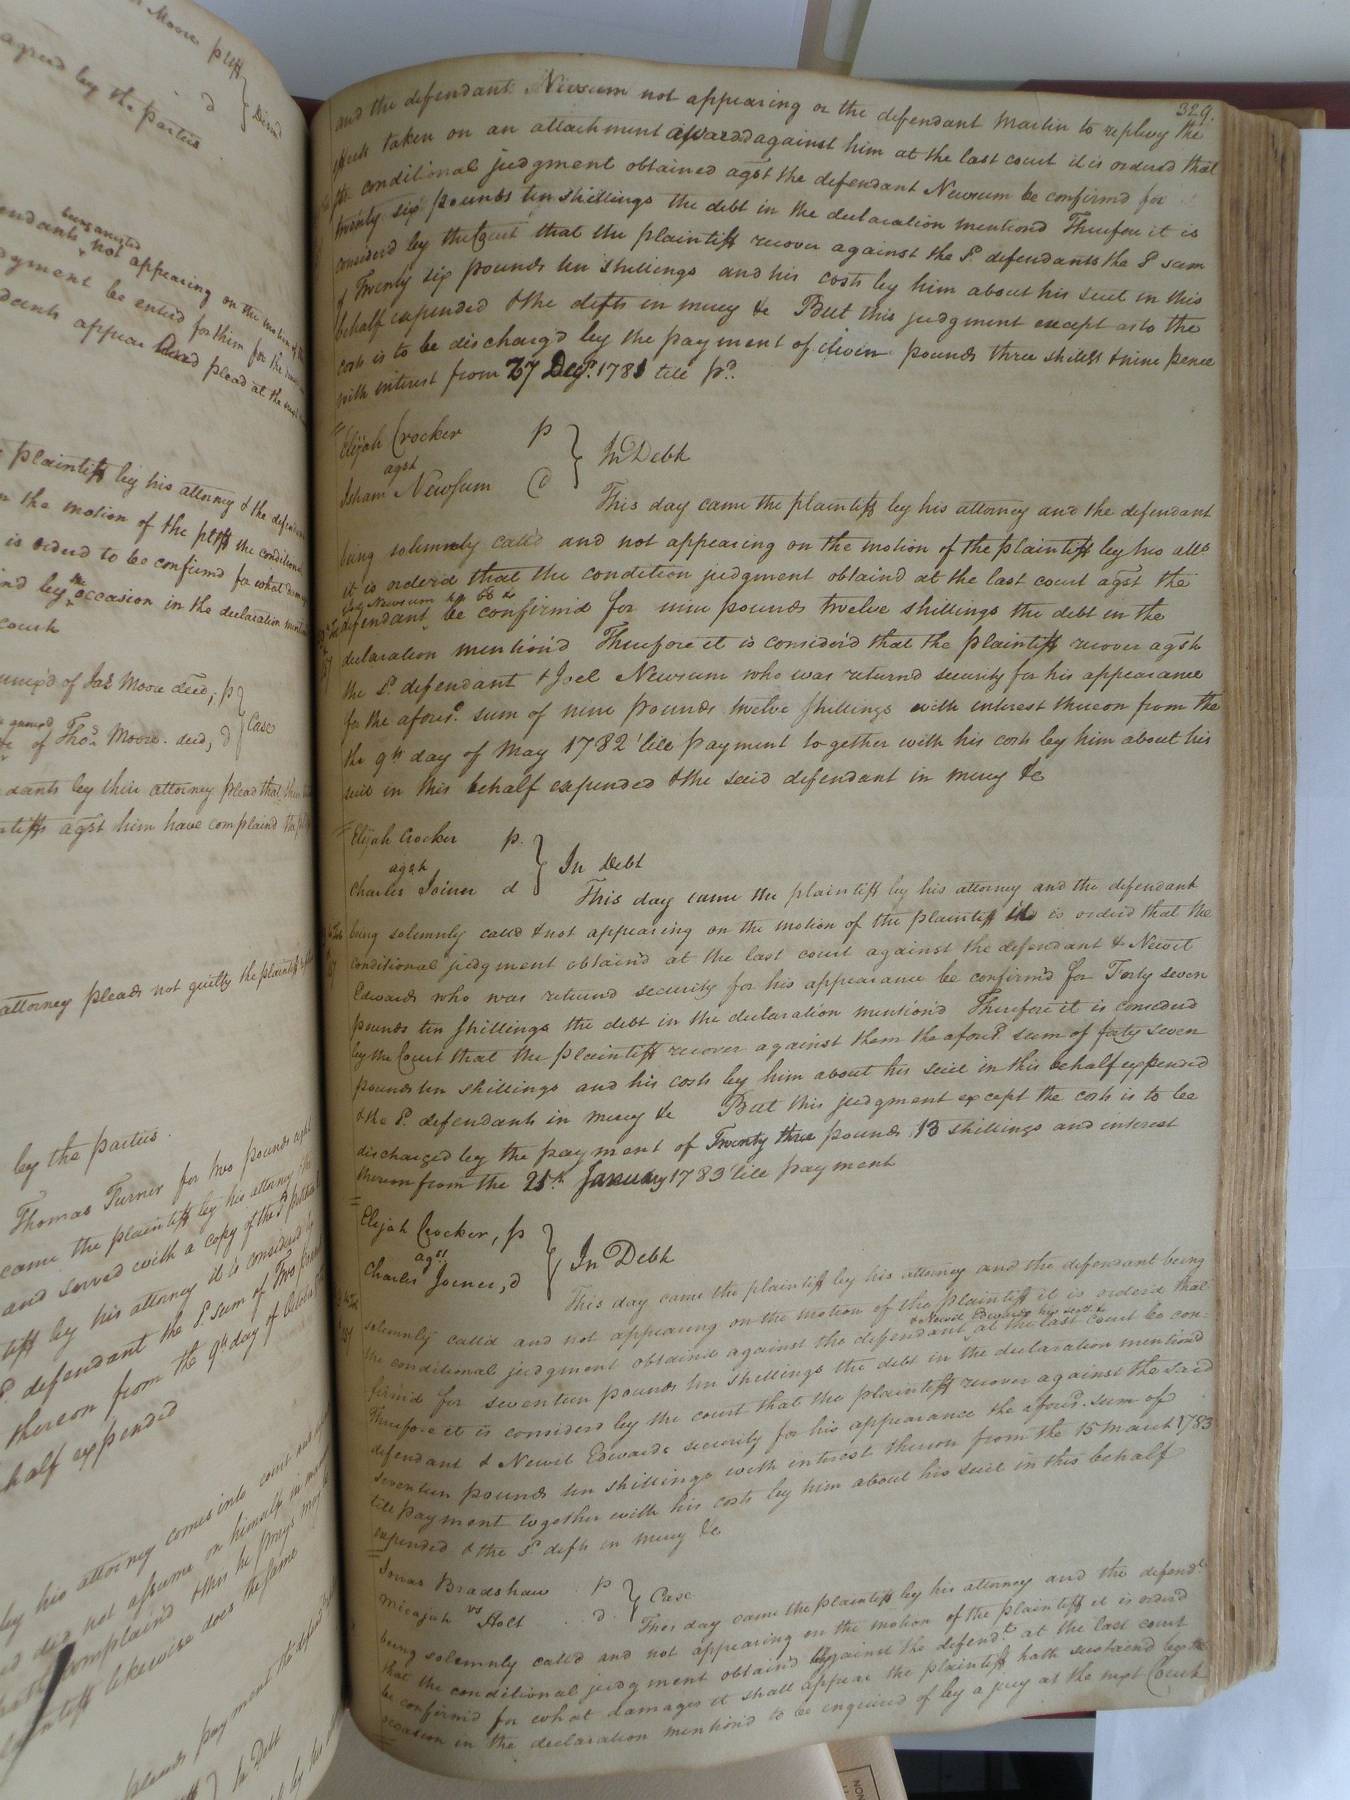 Moore pltff
d
Dismd
agreed by the parties
being arrested
not appearing on the motion of the
judgment be entred for them for the
appear and plead at the next
plaintiff by his attorney & the defendant
on the motion of the pltff the conditional
is orderd to be confirmd for what damages
the
by occasion in the declaration mentiond
Court
of Jas Moore decd, p
Case
of Thos. Moore decd, d
by their attorney plead that
agst him have complaind
attorney pleads not guilty the plaintiff
by the parties.
Thomas Turner for two pounds
came the plaintiff by his attorney
and served with a copy of the sd. petition
by his attorney it is considerd by
defendant the sd. sum of Two pounds
thereon from the 9th day of October
half expended
by his attorney comes into court and
did not assume on himself in manner
complain'd & this he prays may be
plaintiff likewise does the same
pleads payment the
In Debt
329.
and the defendant Newsum not appearing or the defendant Martin to replevy the
effects taken on an attachment awarded against him at the last court it is ordered that
the conditional judgment obtained agst the defendant Newsum be confirmd for
twenty six pounds ten shillings the debt in the declaration mentiond Therefore it is
considerd by the Court that the plaintiff recover against the sd. defendants the sd. sum
of Twenty six pounds ten shillings and his costs by him about his suit in this
behalf expended & the defts in mercy &c But this judgment except as to the
costs is to be discharg'd by the payment of eleven pounds three shills & nine pence
with interest from 27 Decr. 1781 till pd.
Elijah Crocker p
agst
In Debt
Isham Newsum d
This day came the plaintiff by his attorney and the defendant
being solemnly call'd and not appearing on the motion of the plaintiff by his atto
it is order'd that the condition judgment obtaind at the last court agst the
Joel Newsum his
defendant be confirm'd for nine pounds twelve shillings the debt in the
declaration mention'd Therefore it is consider'd that the plaintiff recover agst
the sd. defendant & Joel Newsum who was returnd security for his appearance
for the aforesd. sum of nine pounds twelve shillings with interest thereon from the
the 9th day of May 1782 till payment together with his costs by him about his
suit in this behalf expended & the said defendant in mercy &c
Elijah Crocker p.
agst
In Debt
Charles Joiner d
This day came the plaintiff by his attorney and the defendant
being solemnly calld & not appearing on the motion of the plaintiff it is orderd that the
conditional judgment obtain'd at the last court against the defendant & Newit
Edwards who was returnd security for his appearance be confirm'd for Forty seven
pounds ten shillings the debt in the declaration mention'd Therefore it is considerd
by the Court that the plaintiff recover against them the aforesd. sum of forty seven
pounds ten shillings and his costs by him about his suit in this behalf expended
& the sd. defendants in mercy &c But this judgment except the costs is to be
discharged by the payment of Twenty three pounds 13 shillings and interest
thereon from the 25th January 1783 till payment
Elijah Crocker, p
agst
In Debt
Charles Joiner, d
This day came the plaintiff by his attorney and the defendant being
solemnly call'd and not appearing on the motion of the plaintiff it is order'd that
& Newit Edwards his
the conditional judgment obtaind against the defendant at the last court be con-
firm'd for seventeen pounds ten shillings the debt in the declaration mentiond
Therefore it is considerd by the court that the plaintiff recover against the said
defendant & Newit Edwards security for his appearance the aforesd. sum of
seventeen pounds ten shillings with interest thereon from the 15 March 1783
till payment together with his costs by him about his suit in this behalf
expended & the sd. defts in mercy &c
Jonas Bradshaw p
vs
Case
Micajah Holt d.
This day came the plaintiff by his attorney and the defendt.
being solemnly call'd and not appearing on the motion of the plaintiff it is orderd
that the conditional judgment obtain'd against the defendt. at the last court
be confirm'd for what damages it shall appear the plaintiff hath sustain'd by the
occasion in the declaration mention'd to be enquired of by a jury at the next Court